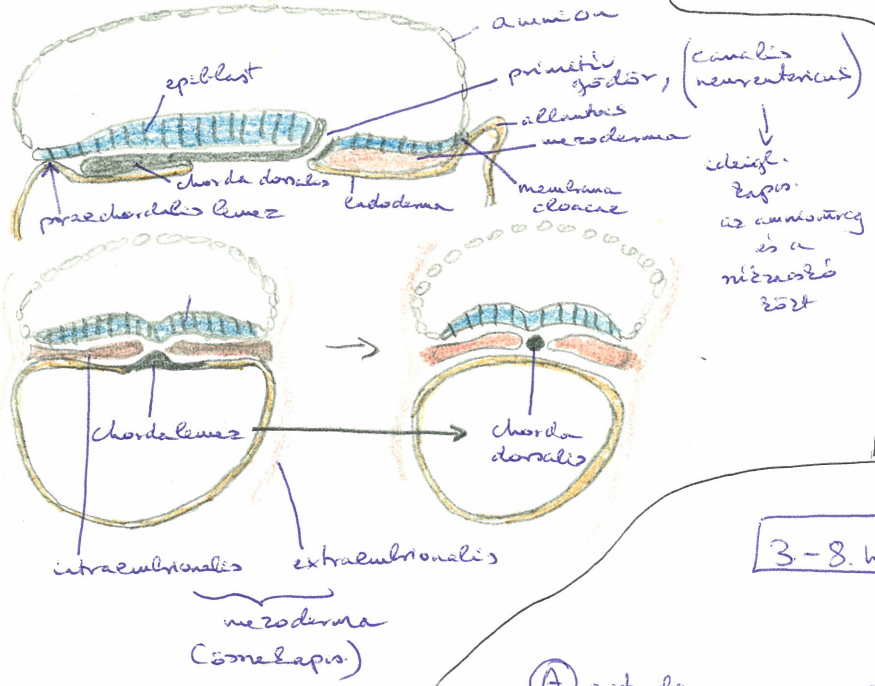 amnion
epiblast
primitív
gödör, (canalis
neurentericus)
allantois
mezoderma
membrana
cloacae
chorda dorsalis
endoderma
praechordalis lemez
ideigl.
kapcs.
az amnionüreg
és a
szikzacskó
közt
chordalemez
chorda
dorsalis
intraembrionalis
extraembrionalis
mezoderma
(összekapcs.)
3.-8. h
A